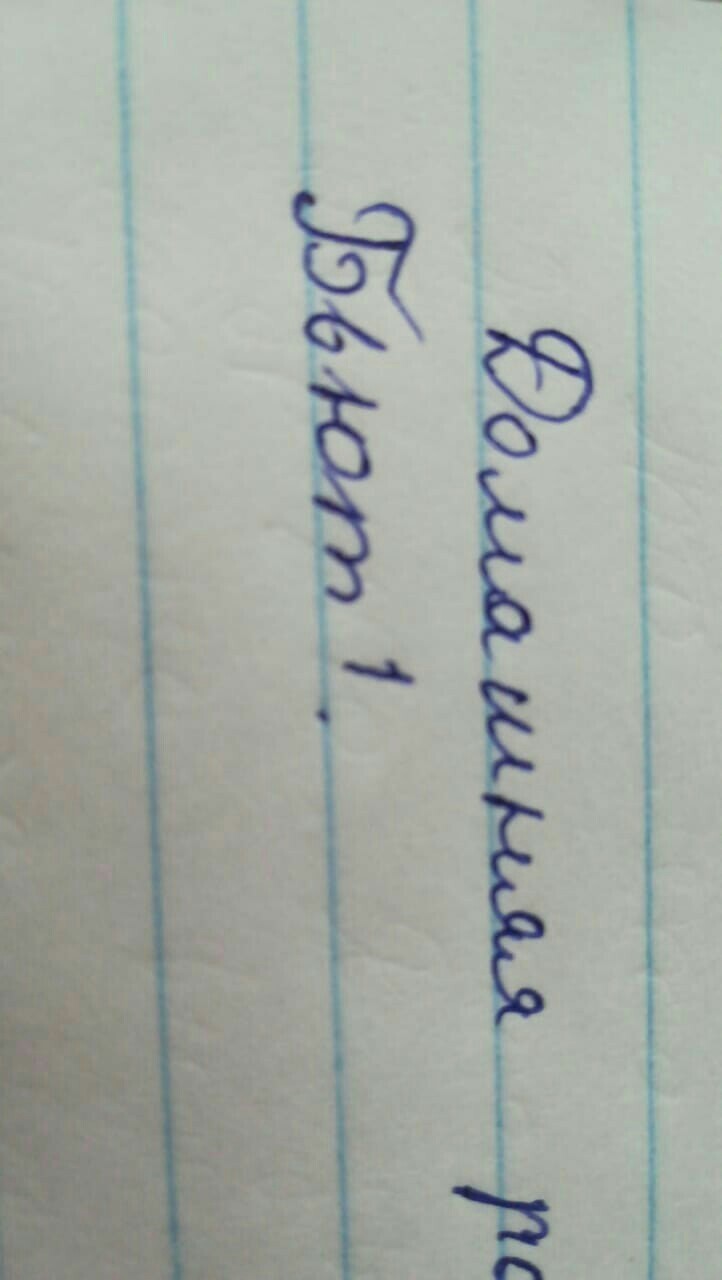 Домашняя
Бьют¹.